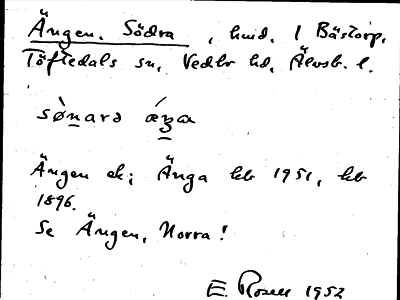 Ängen, Södra, hmd. 1 Bästorp,
Töftedals sn, Vedbo hd, Älvsb. l.
sònarə ǽŋa
Ängen ek; Änga kb 1951, kb
1896.
Se Ängen, Norra!
E. Rosell 1952